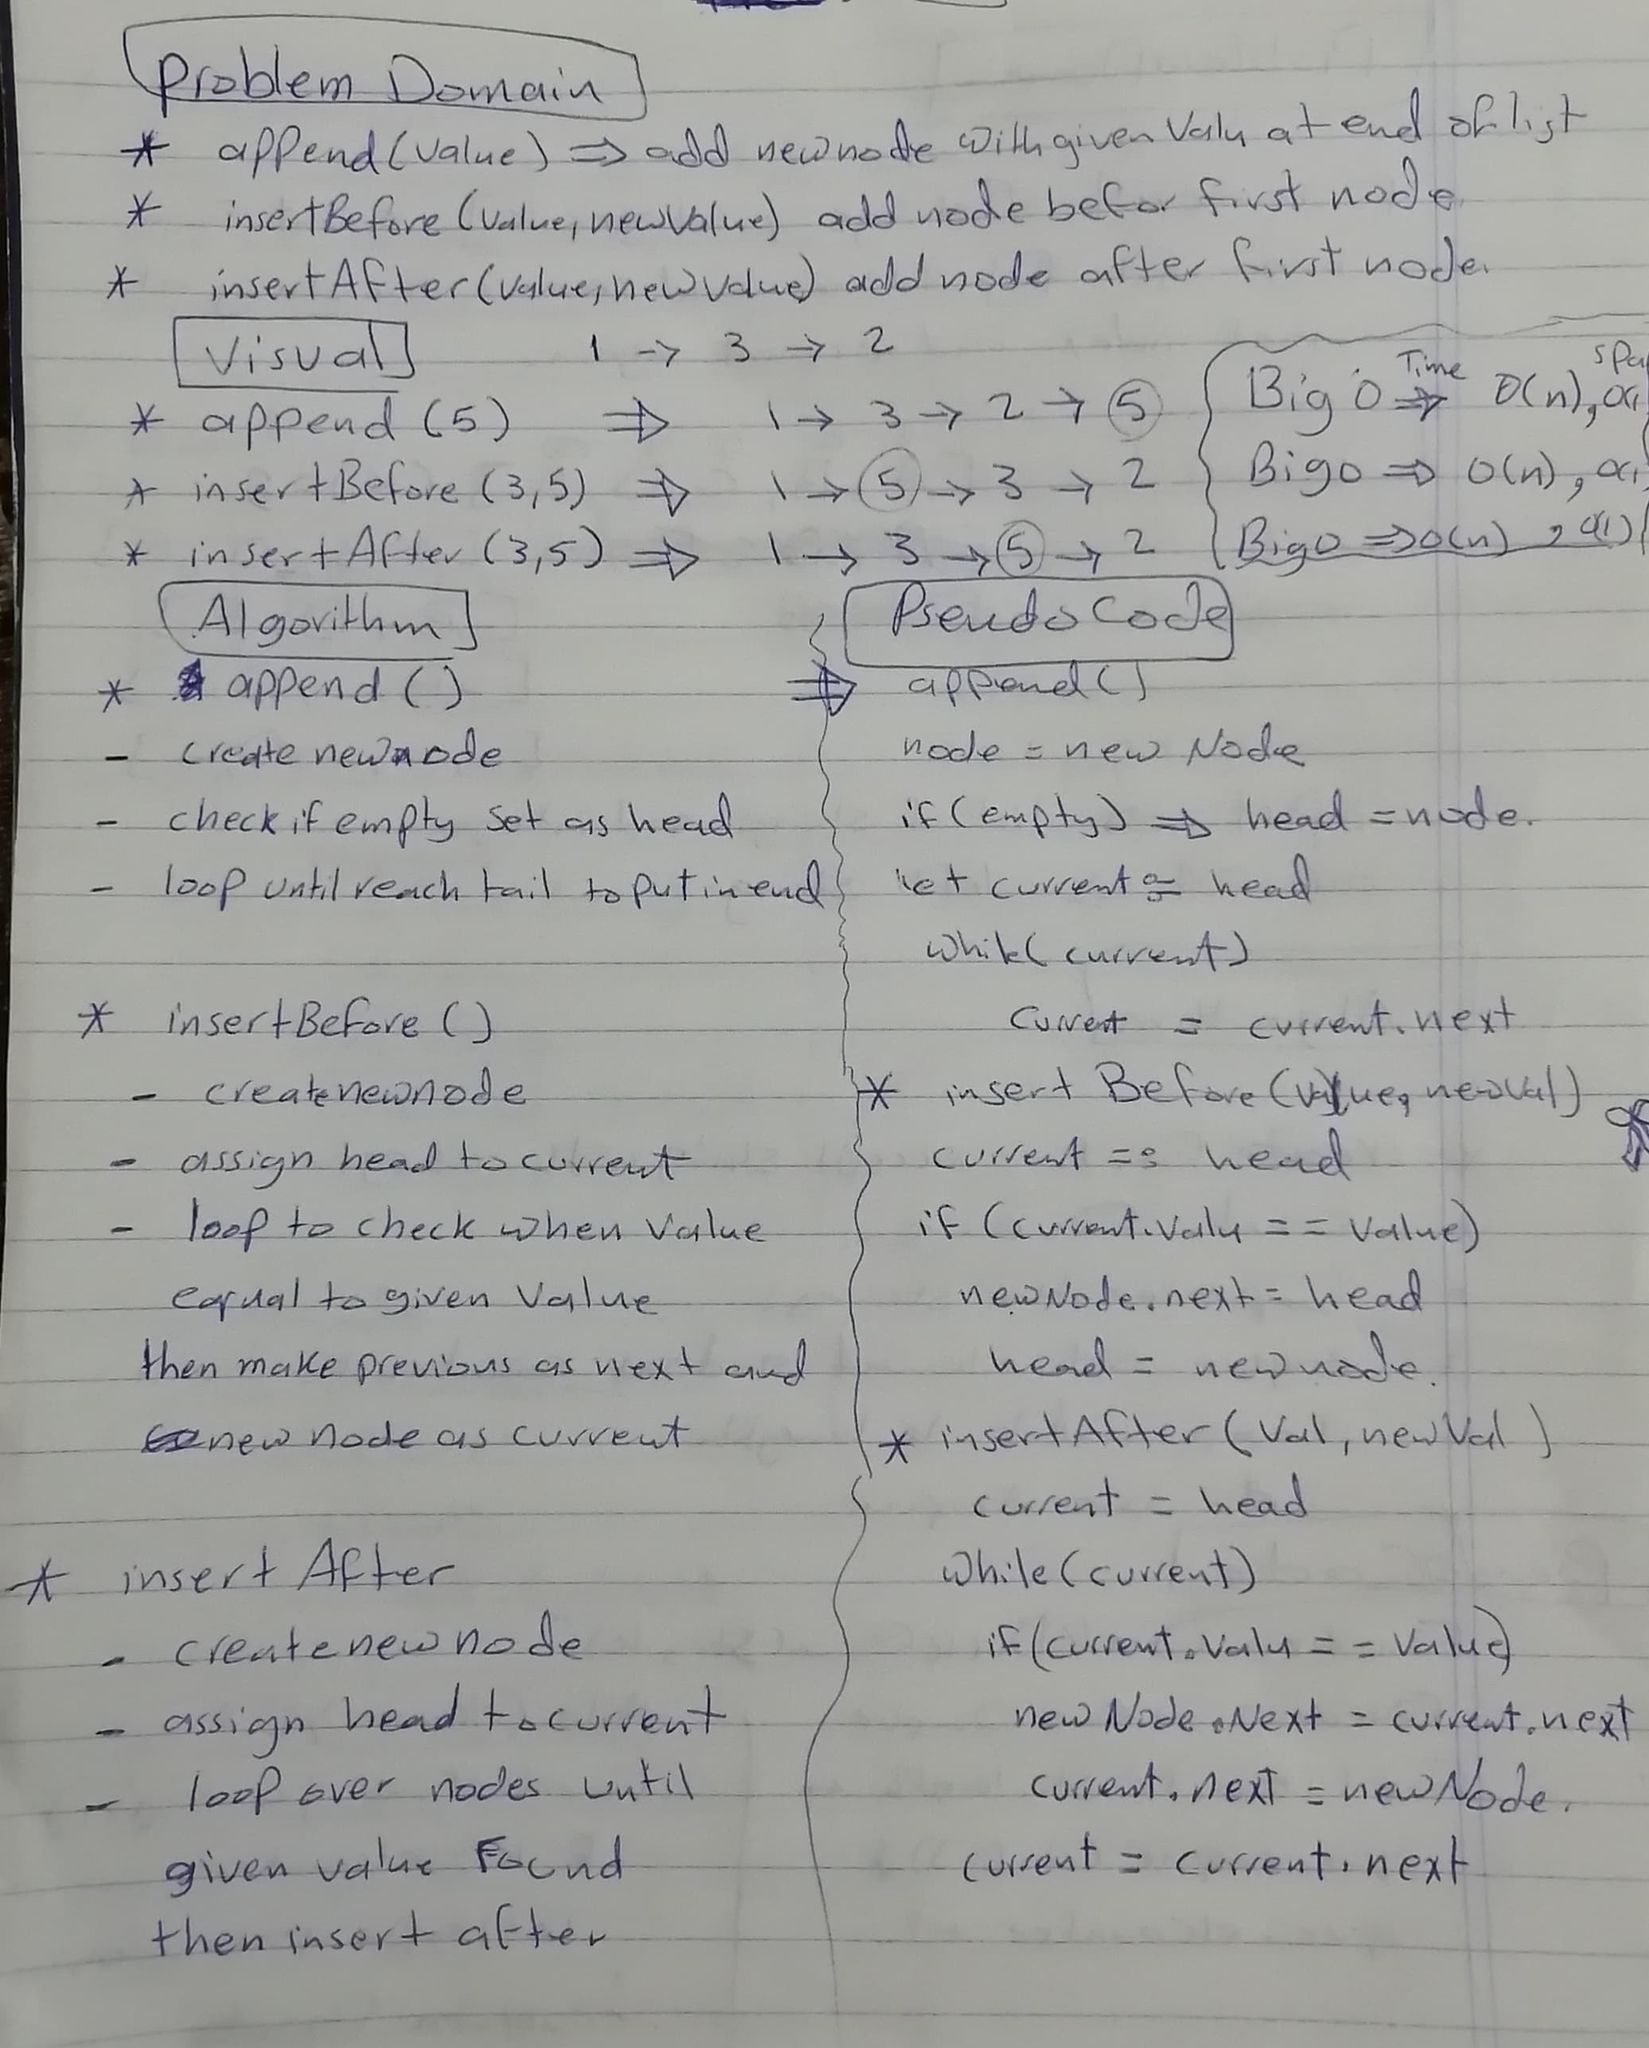 Problem Domain
* append(value) => add new node with given Valu at end of list
* insertBefore(value, newValue) add node befor first node
* insertAfter(value, newValue) add node after first node.
Visual 1 -> 3 -> 2
* append (5) => 1 -> 3 -> 2 -> 5
* insertBefore (3,5) => 1 -> 5 -> 3 -> 2
* insertAfter (3,5) => 1 -> 3 -> 5 -> 2
Time
Big O => O(n),
Big O => O(n),
Big O => O(n), O(1)
Algorithm
* append ()
- create new node
- check if empty set as head
- loop until reach tail to put in end
* insertBefore ()
- create new node
- assign head to current
- loop to check when value
equal to given value
then make previous as next and
new node as current
* insert After
- create new node
- assign head to current
- loop over nodes until
given value Found
then insert after
Pseudo Code
=> append()
node = new Node
if (empty) => head = node.
let current = head
while( current)
current = current.next
* insert Before (value, newVal)
current = head
if (current.valu == value)
newNode.next = head
head = new node.
* insertAfter (Val, newVal)
current = head
while (current)
if (current.valu == value)
newNode.Next = current.next
current.next = newNode.
current = current.next